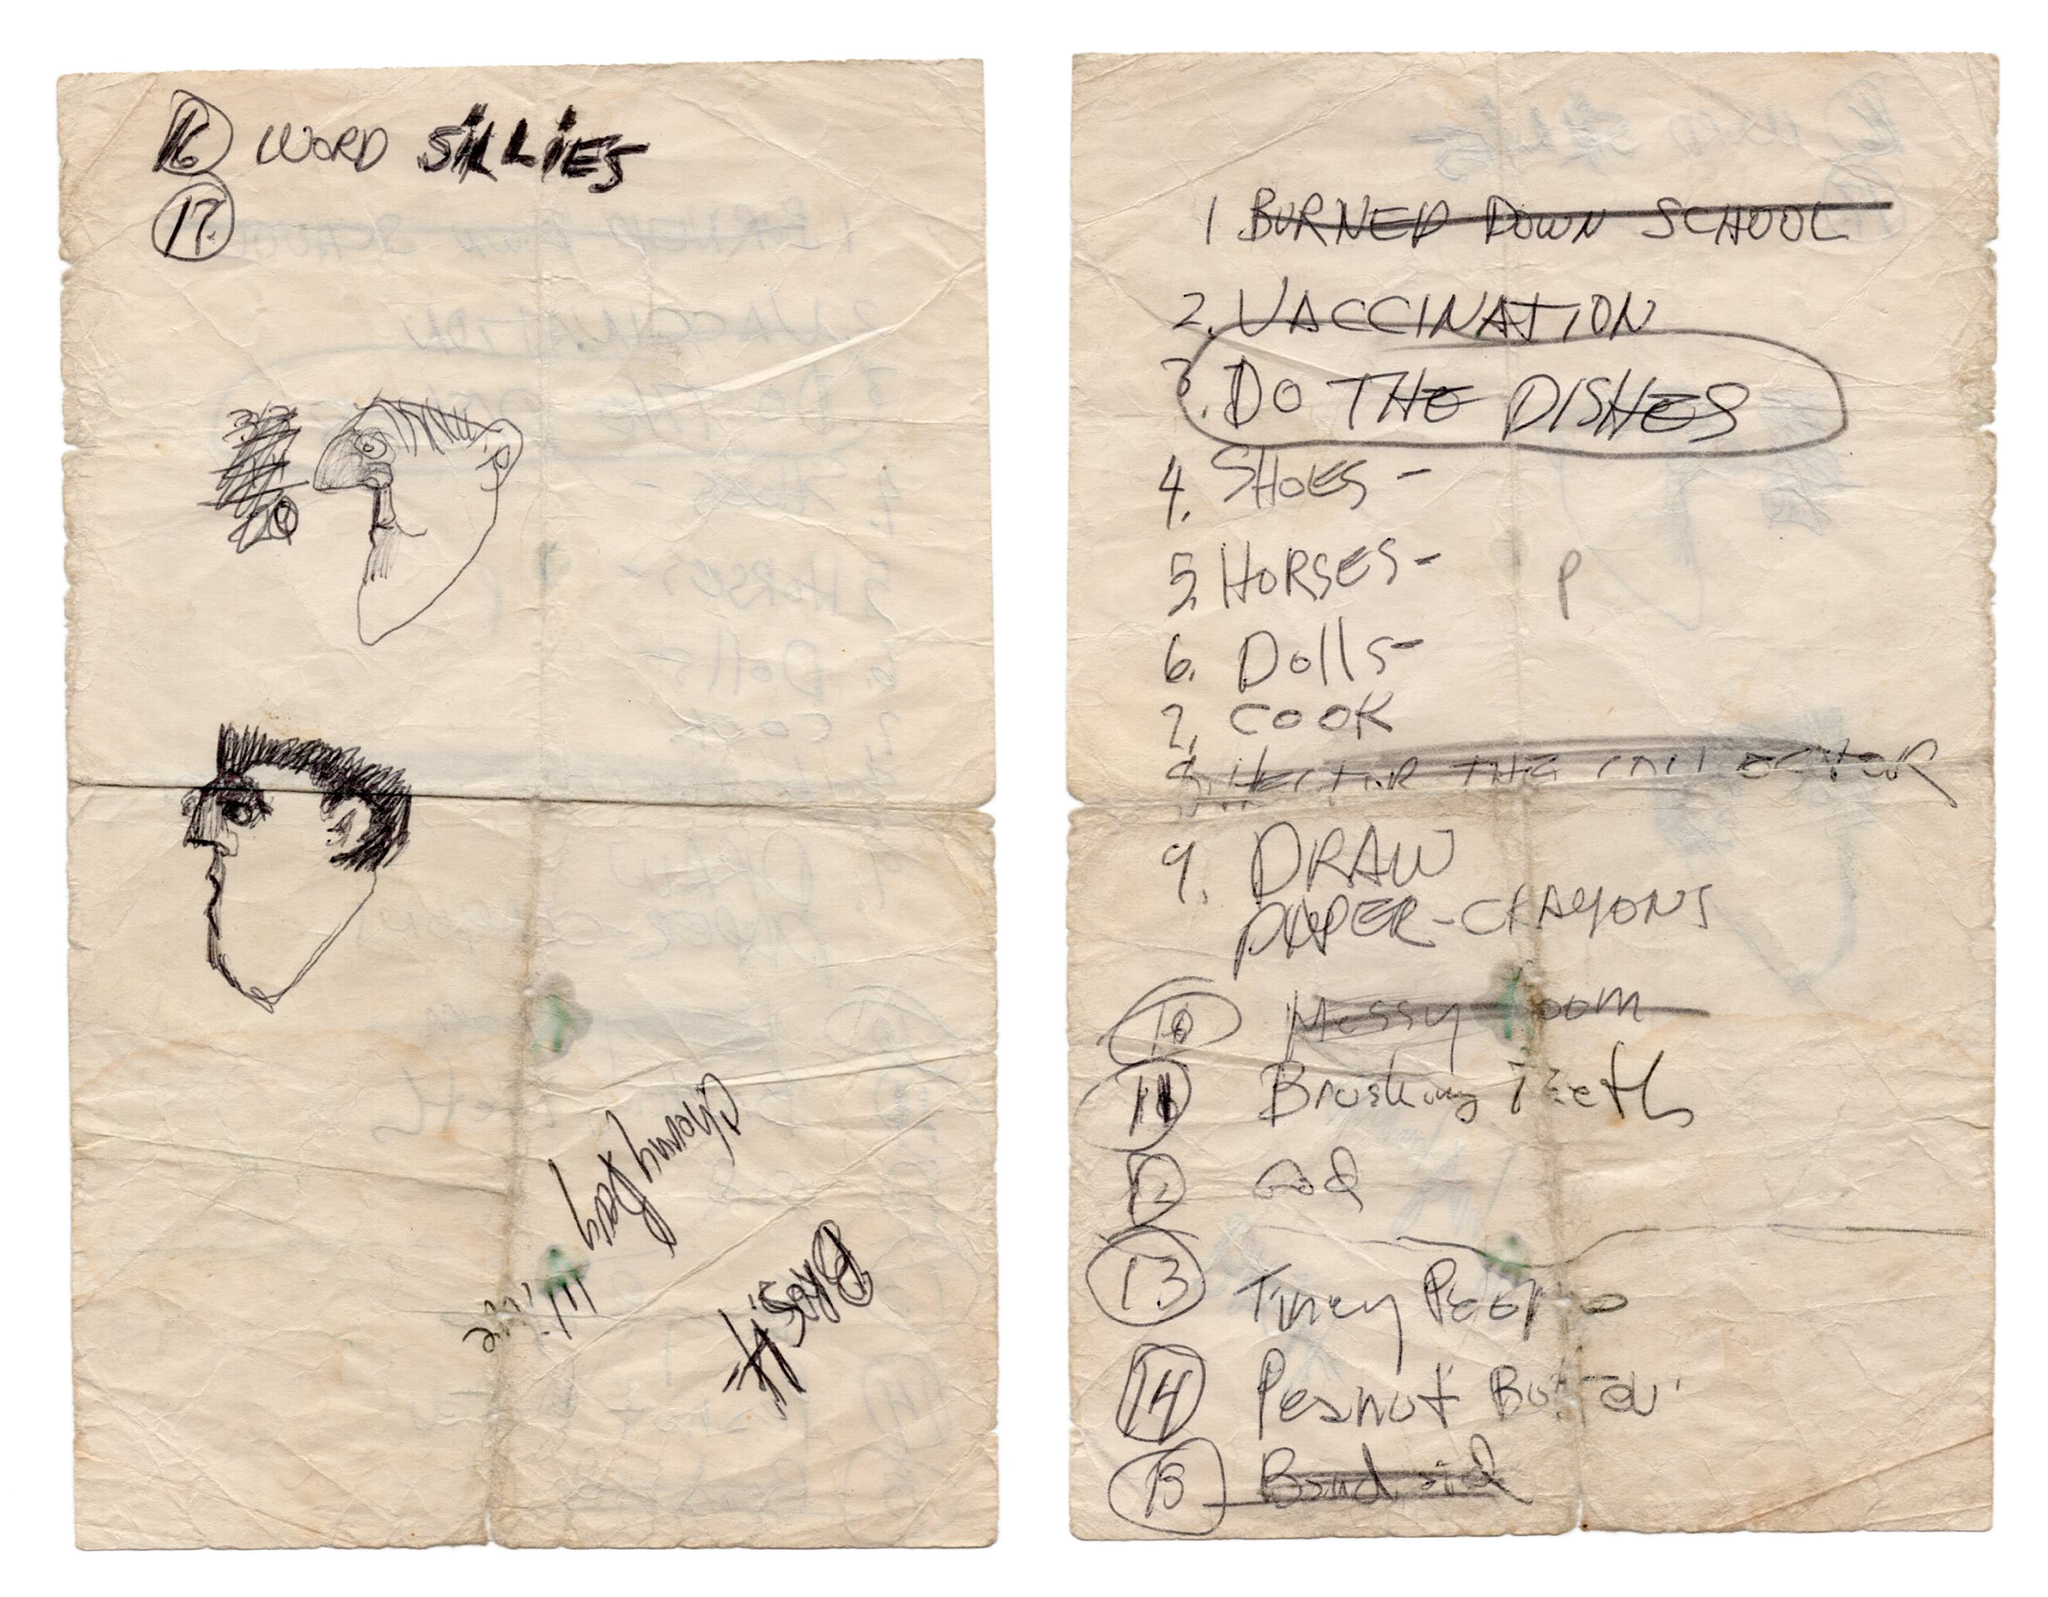 16 WORD SILLIES
17.
Whitie
1 BURNED DOWN SCHOOL
2. VACCINATION
3. DO THE DISHES
4. SHOES -
5. HORSES -
P
6. Dolls -
7. COOK
8. HECTOR THE COLLECTOR
9. DRAW
PAPER - CRAYONS
10 Messy Room
11 Brushing Teeth
12 God
13 Tiney People
14 Peanut Butter
15 Band aid